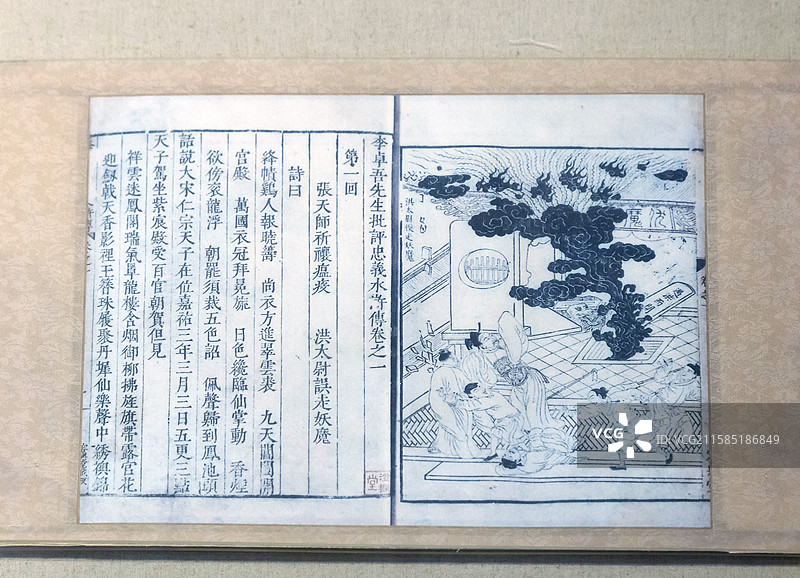 李卓吾先生批評忠義水滸傳卷之一
第一回
張天師祈禳瘟疫 洪太尉誤走妖魔
詩曰
絳幘鷄人報曉籌 尚衣方進翠雲裘 九天閶闔開
宮殿 萬國衣冠拜冕旒 日色纔臨仙掌動 香煙
欲傍衮龍浮 朝罷須裁五色詔 佩聲歸到鳳池頭
話說大宋仁宗天子在位嘉祐三年三月三日五更三點
天子駕坐紫宸殿受百官朝賀但見
祥雲迷鳳閣瑞氣罩龍樓含烟御柳拂旌旗帶露宮花
迎劍戟天香影裡玉簪珠履聚丹墀仙樂聲中綉襖錦
洪太尉悞走妖魔
伏魔
遇洪而開
VCG
VCG211585186849